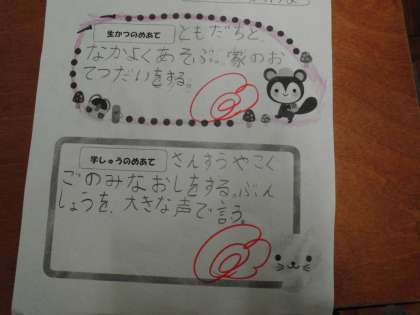 生かつのめあて
ともだちと、
なかよくあそぶ。家のお
てつだいをする。
学しゅうのめあて
さんすうやこく
ごのみなおしをする。ぶん
しょうを、大きな声で言う。